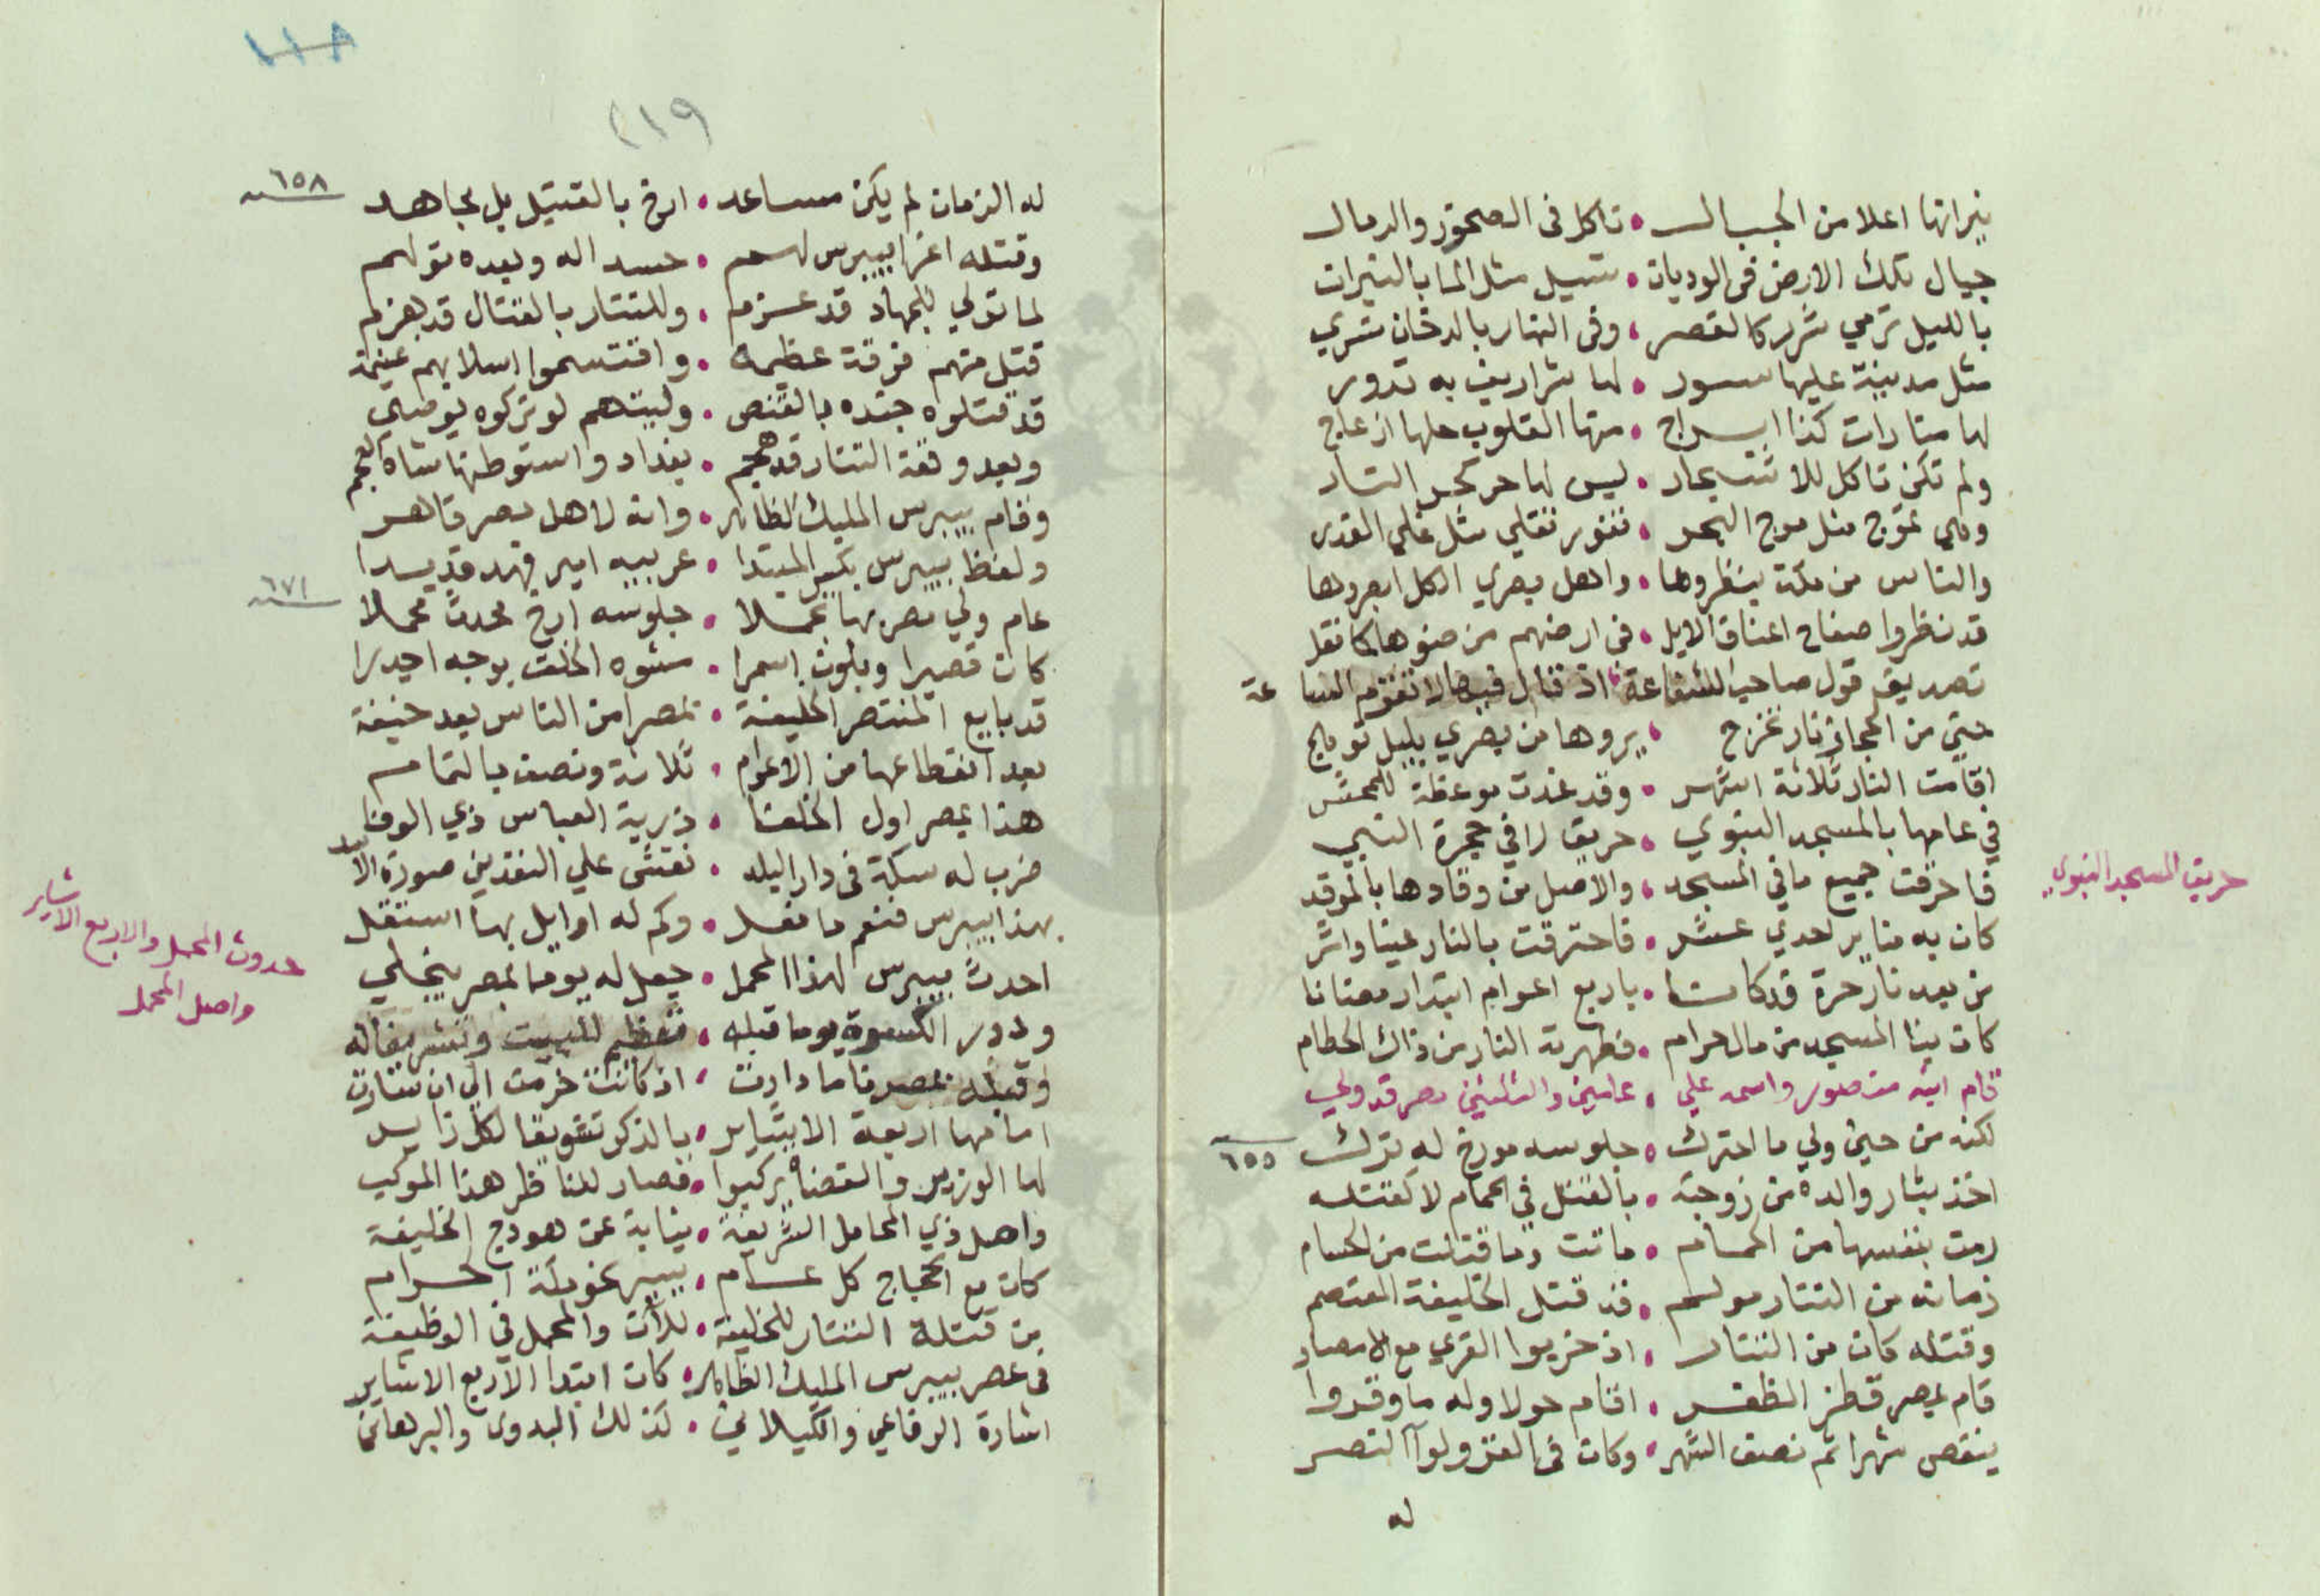 نيرانها اعلا من الجبال • تاكل في الصخور والرمال
جبال تلك الارض في الوديان • تسيل مثل الما بالنيران
بالليل ترمي شرر كالقصر • وفي النهار بالدخان تسري
مثل مدينة عليها سور • لها شراريف به تدور
لها منارات كذا ابراج • منها القلوب حلها ازعاج
ولم تكن تاكل للاشجار • ليس لها حر كحر النار
وهي تموج مثل موج البحر • تفور تغلي مثل غلي القدر
والناس من مكة ينظروها • واهل بصري الكل ابصروها
قد نظروا صفاح اعناق الابل • في ارضهم من ضوها كما نقل
تصديق قول صاحب الشفاعة • اذ قال فيها لا تقوم الساعة
حتي من الحجاز نار تخرج • يروها من بصري بليل توهج
اقامت النار ثلاثة اشهر • وقد غدت موعظة للمحشر
في عامها بالمسجد النبوي • حريق را في حجرة النبي
حريق المسجد النبوي
فاحرقت جميع ما في المسجد • والاصل من وقادها بالموقد
كان به منابر احدي عشر • فاحترقت بالنار عينا واثر
من بعد نار حرة قد كانتا • باربع اعوام ابتدار
كان بنا المسجد من مال حرام • فطهرته النار من ذاك الحطام
قام ابنه منصور واسمه علي • عامين والثلثين مصر قد ولي
لكنه من حين ولي ما احترك • جلوسه مورخ له ترك
٦٥٥
اخذ بثار والده من زوجته • بالقتل في الحمام لا كقتلته
رمت بنفسها من الحمام • ماتت وما قتلت من الحسام
زمانه من التتار مولم • قد قتل الخليفة المعتصم
وقتله كان من التتار • اذ خربوا القري مع الامصار
قام بمصر قطز المظفر • اقام حولا وله ما وقروا
ينقص شهرا ثم نصف الشهر • وكان في الغزو لواآ النصر
له
١١٨
٢١٩
له الزمان لم يكن مساعد • ارخ بالقتيل بل مجاهد
٦٥٨
وقتله اغرا بيبرس لهم • حسدا له وبعده تولهم
لما تولي للجهاد قد عزم • وللتتار بالقتال قد هزم
قتل منهم فرقة عظيمة • واقتسموا اسلابهم غنيمة
قد قتلوه جنده بالقنص • وليتهم لو تركوه يوصي
وبعد وقعة التتار قد هجم • بغداد واستوطنها شاه العجم
وقام بيبرس المليك الظاهر • وانه لاهل مصر قاهر
ولفظ بيبرس بكسر المبتدا • عربيه امير فهد قد بدا
عام ولي مصر بها تحملا • جلوسه ارخ محدث محملا
٦٧١
كان قصيرا وبلون اسمرا • مشوه الخلقت بوجه اجدرا
قد بايع المنتصر الخليفة • بمصر امن الناس بعد خيفة
بعد انقطاعها من الاعوام • ثلاثة ونصف بالتمام
هذا بمصر اول الخلفا • ذرية العباس ذي الوفا
ضرب له سكة في دار البلد • نقش علي النقدين صورة الاسد
بهذا بيبرس فنعم ما فعل • وكم له اوايل بها استقل
احدث بيبرس لهذا المحمل • جعل له يوما بمصر ينجلي
حدوث المحمل والاربع الاشاير
واصل المحمل
ودور الكسوة يوما قبله • تعظيم للبيت وتشريفا له
وقبله بمصرنا ما دارت • اذ كانت حرمت الي ان سارت
امامها اربعة الاشاير • بالذكر تشويقا لكل زاير
لها الوزير والقضاة يركبوا • فصار للناظر هذا الموكب
واصل ذي المحامل الشريفة • نيابة عن هودج الخليفة
كان مع الحجاج كل عام • يسير نحو مكة الحرام
من قتلة التتار للخليفة • للآن والمحمل في الوظيفة
في عصر بيبرس المليك الظاهر • كان ابتدا الاربع الاشاير
اشارة الرفاعي والكيلاني • كذلك البدوي والبرهاني